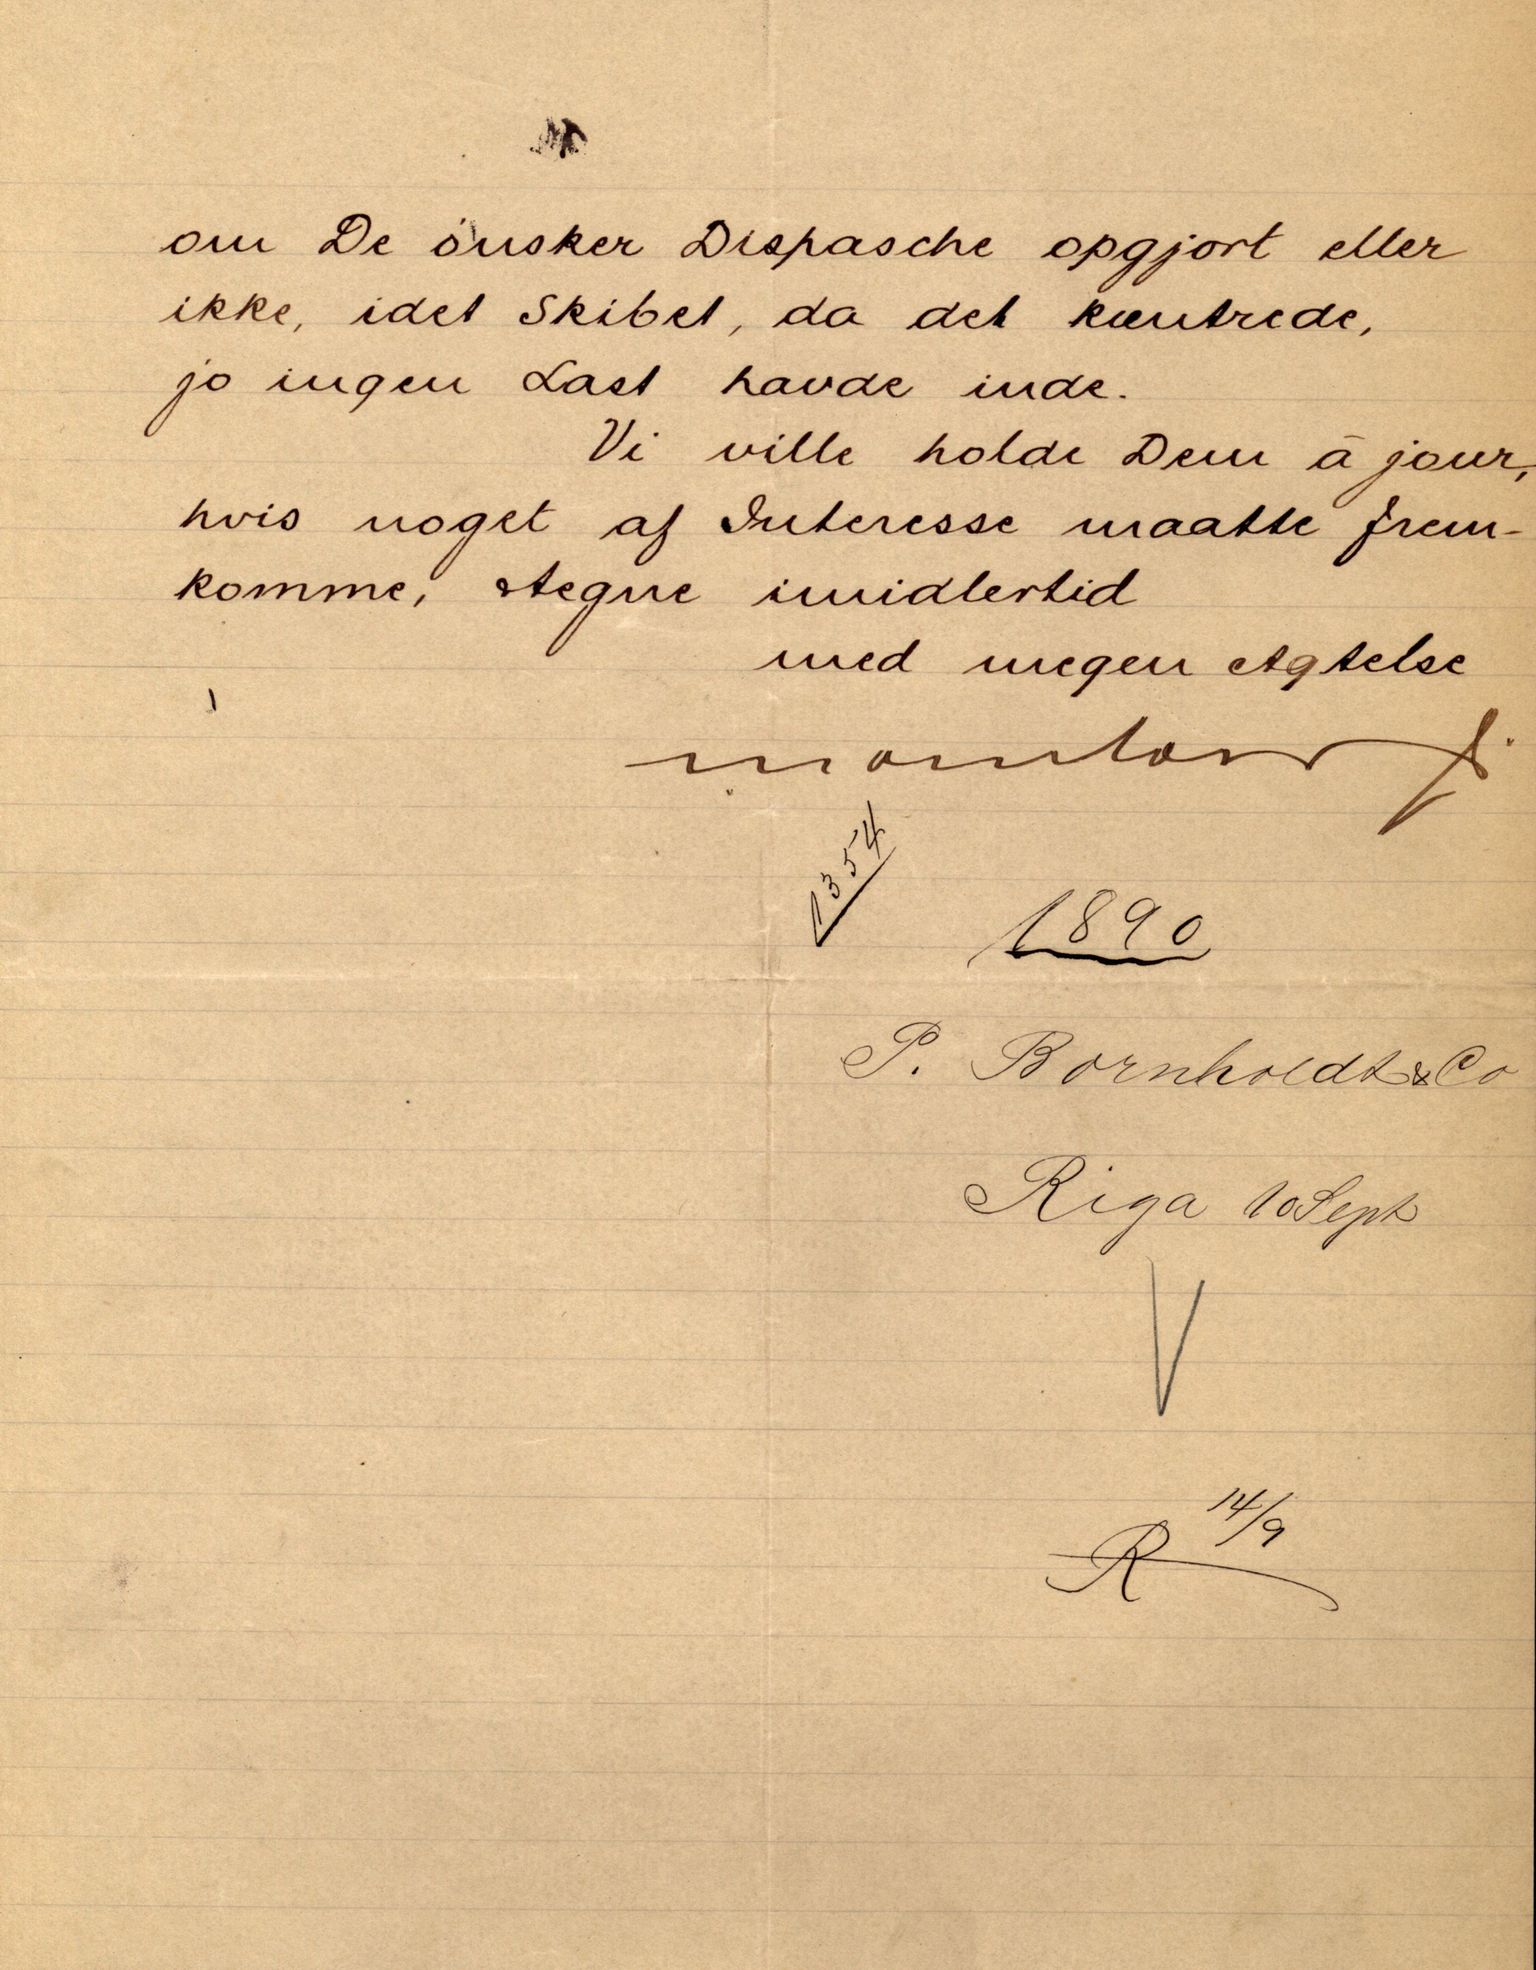 om De önsker Dispasche opgjort eller
ikke, idet Skibet, da det kæntrede,
jo ingen Last havde inde.
Vi ville holde Dem à jour,
hvis noget af Interesse maatte frem-
komme, tegne imidlertid
med megen Agtelse
1354
1890
P. Bornholdt & Co
Riga 10 Sept
R 14/9